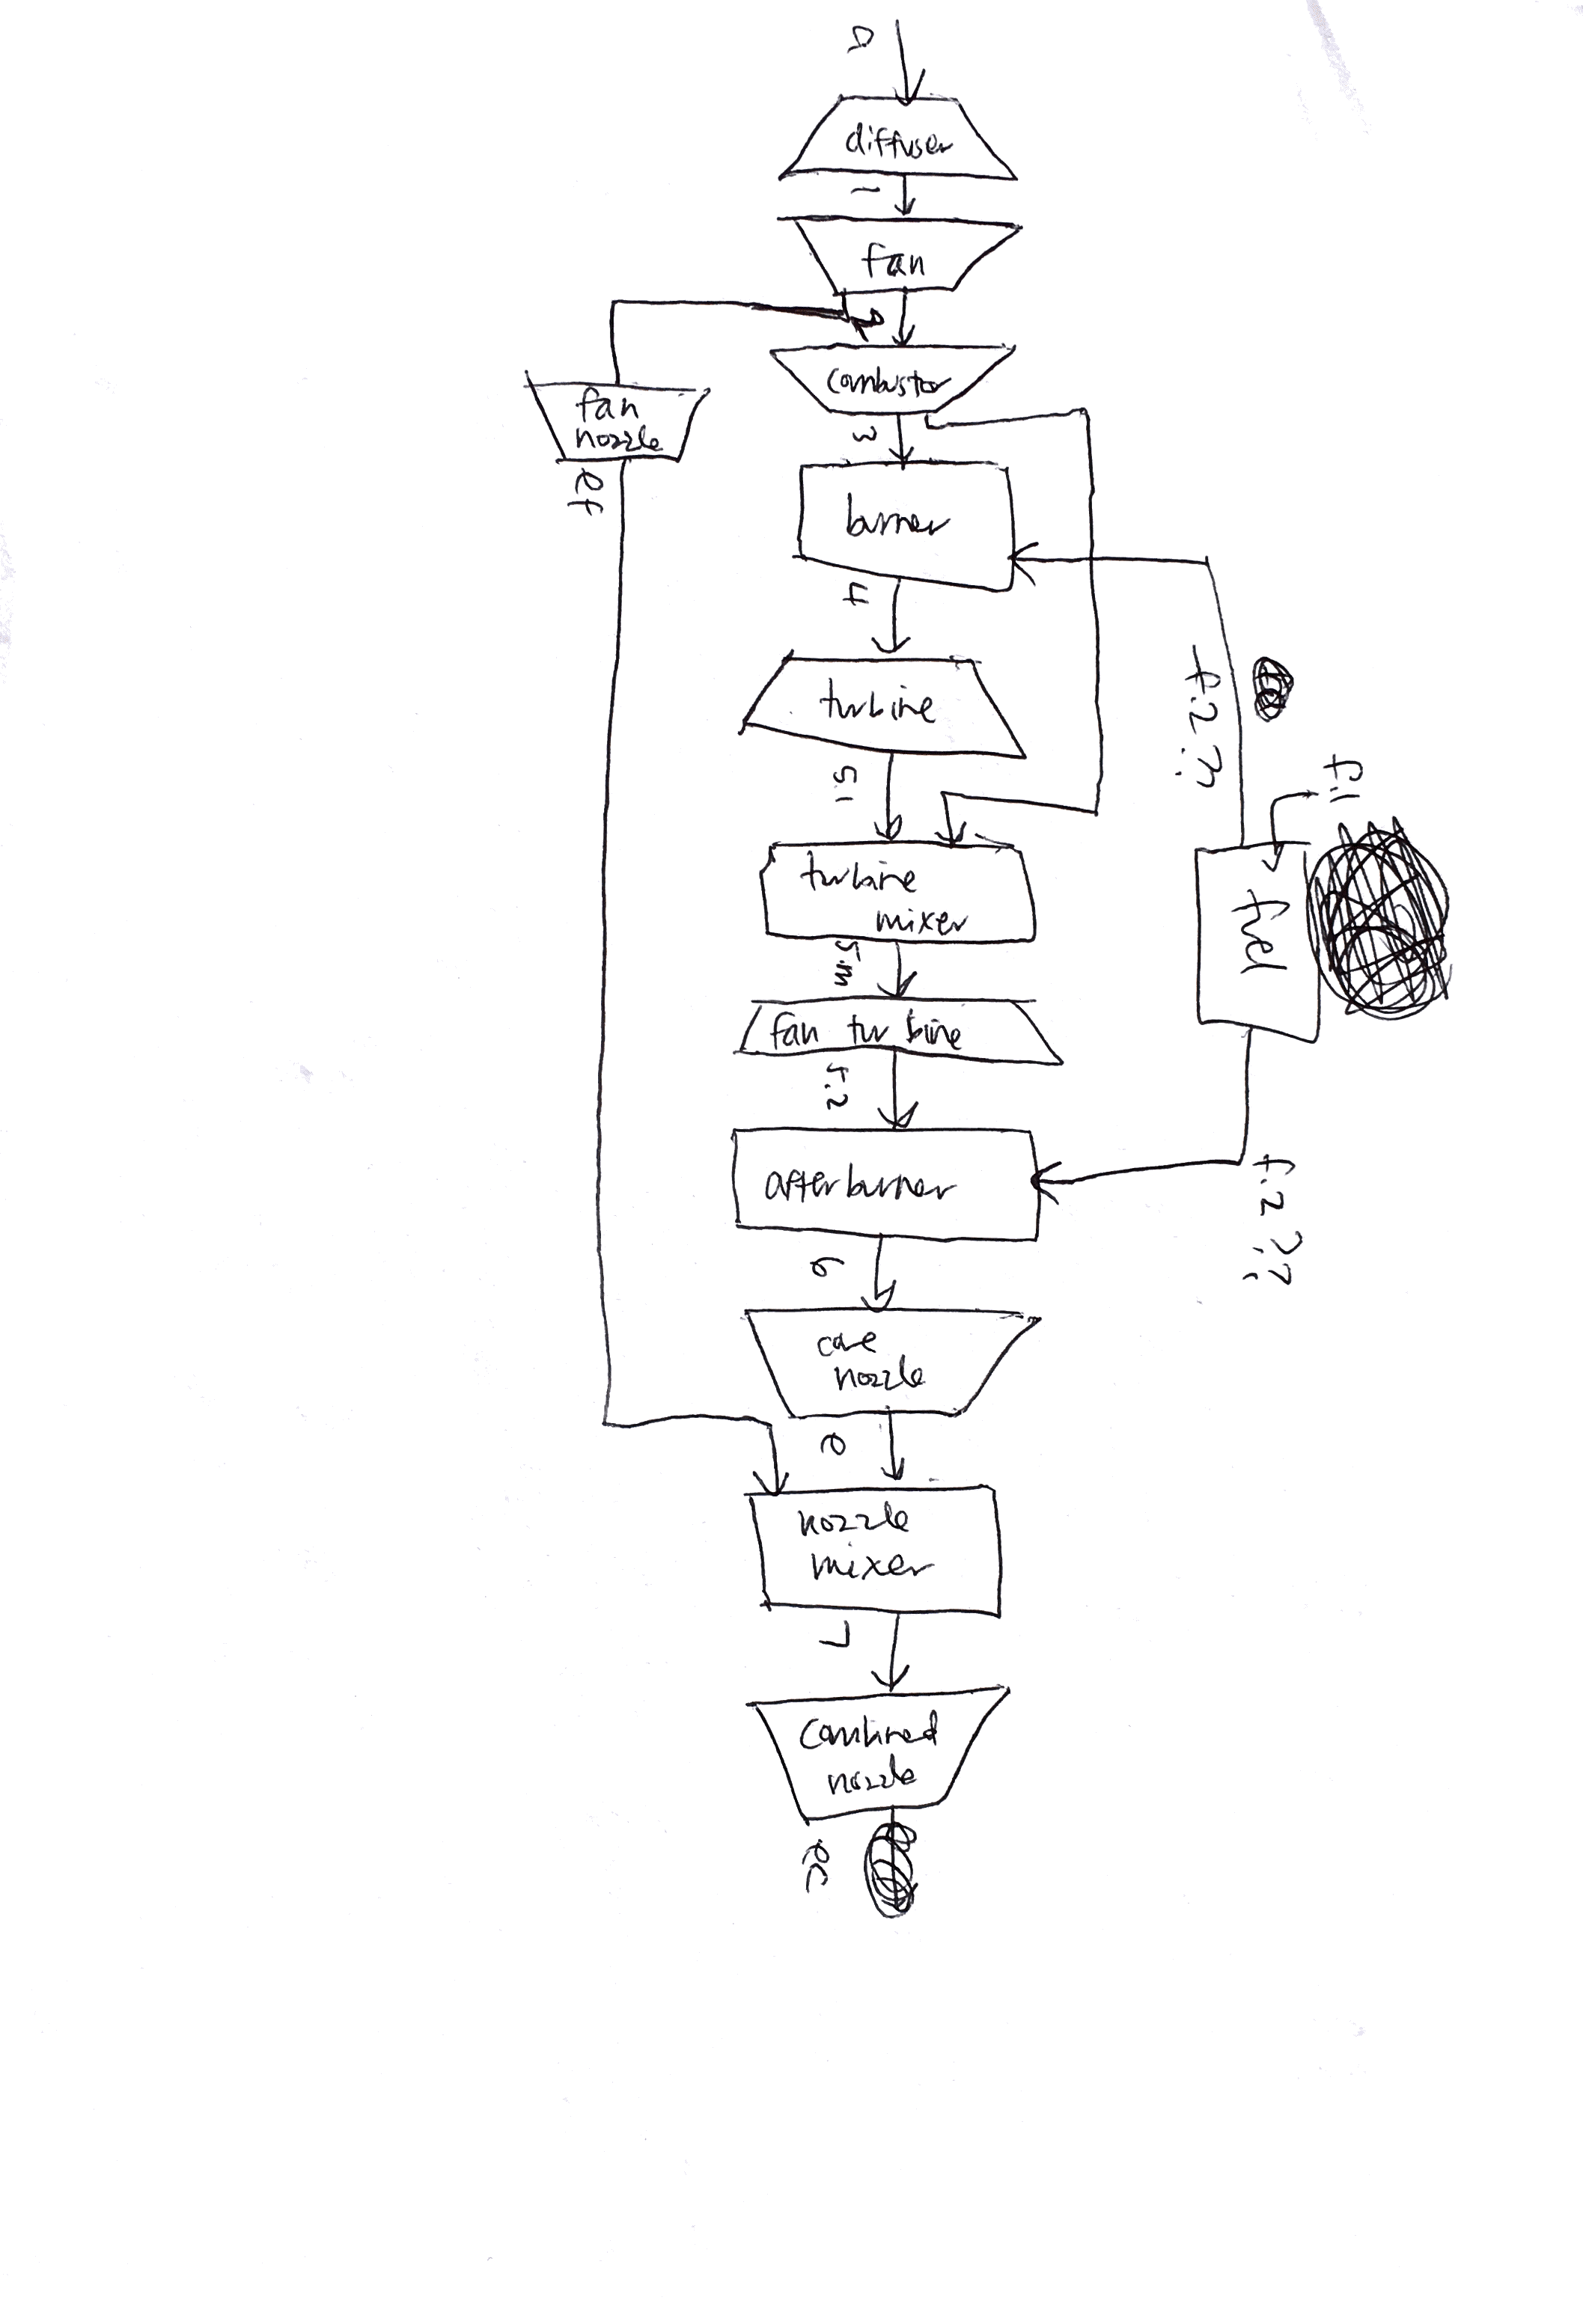 diffuser
1
fan
2
combustor
3
fan
nozzle
ef
burner
4
turbine
5.1
f.2 ??
f.1
turbine
mixer
fuel
5.m
fan turbine
5.2
afterburner
f.2 ??
6
core
nozzle
e
nozzle
mixer
7
Combined
nozzle
ec